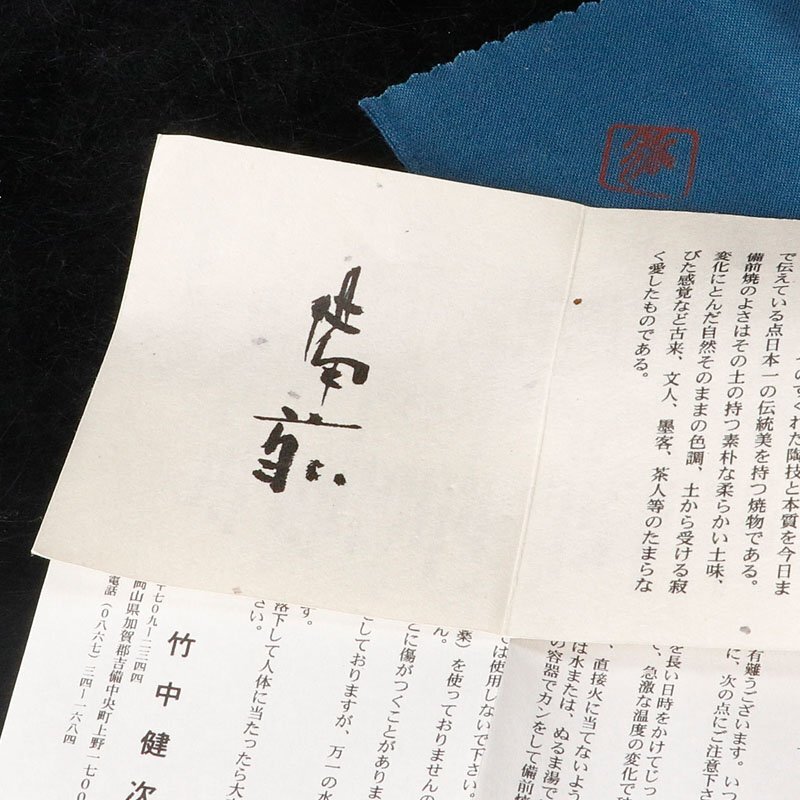 備前
のすぐれた陶技と本質を今日ま
で伝えている点日本一の伝統美を持つ焼物である。
備前焼のよさはその土の持つ素朴な柔らかい土味、
変化にとんだ自然そのままの色調、土から受ける寂
びた感覚など古来、文人、墨客、茶人等のたまらな
く愛したものである。
有難うございます。いつ
に、次の点にご注意下さ
を長い日時をかけてじっ
、急激な温度の変化で
、直接火に当てないよう
は水または、ぬるま湯で
の容器でカンをして備前焼
では使用しないで下さい。
薬）を使っておりませんの
ん。
とに傷がつくことがありま
しておりますが、万一の水
す。
落下して人体に当たったら大
さい。
竹中健次
〒七〇九―二三四四
岡山県加賀郡吉備中央町上野一七〇〇
電話（〇八六七）三四―一六八四